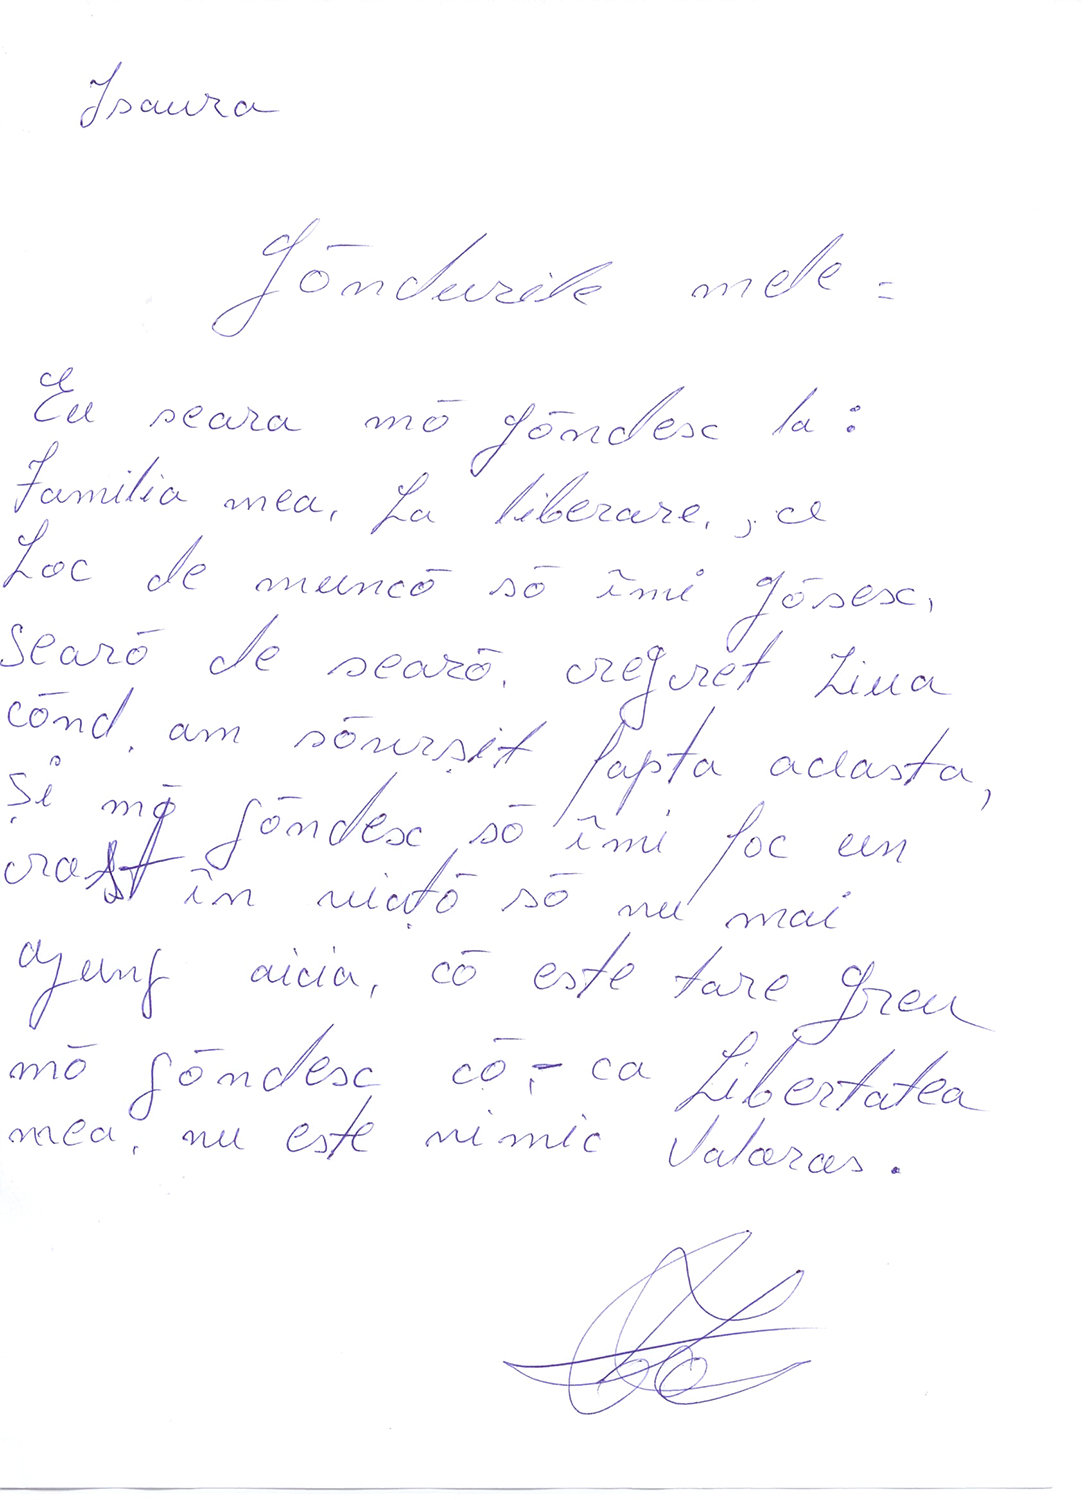 Isaura
Gândurile mele =
Eu seara mă gândesc la:
Familia mea, La liberare, , ce
Loc de muncă să îmi găsesc,
Seară de seară, regret Ziua
când, am săvârșit fapta aceasta,
Și mă gândesc să îmi fac un
rost în viață să nu mai
ajung aicia, că este tare greu
mă gândesc că, - ca Libertatea
mea, nu este nimic Valaras.